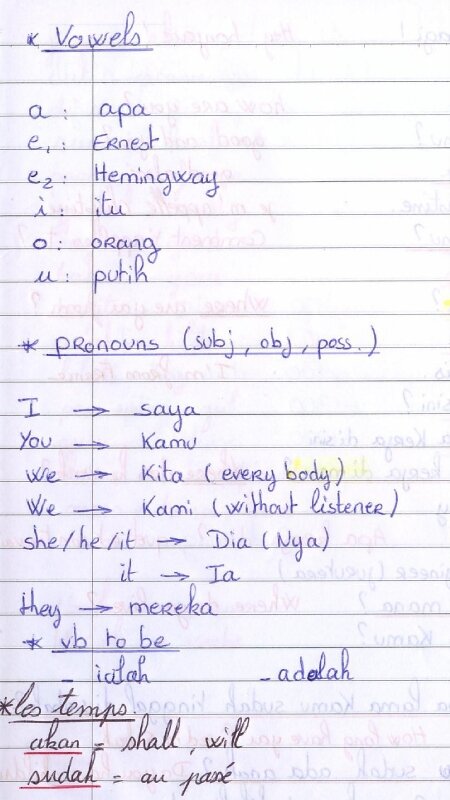 * Vowels
a : apa
e1 : Ernest
e2 : Hemingway
i : itu
o : orang
u : putih
* pronouns (subj, obj, poss.)
I → saya
You → Kamu
we → Kita (every body)
We → Kami (without listener)
she/he/it → Dia (Nya)
it → Ia
they → mereka
* vb to be
- ialah - adalah
* les temps
akan = shall, will
sudah = au passé